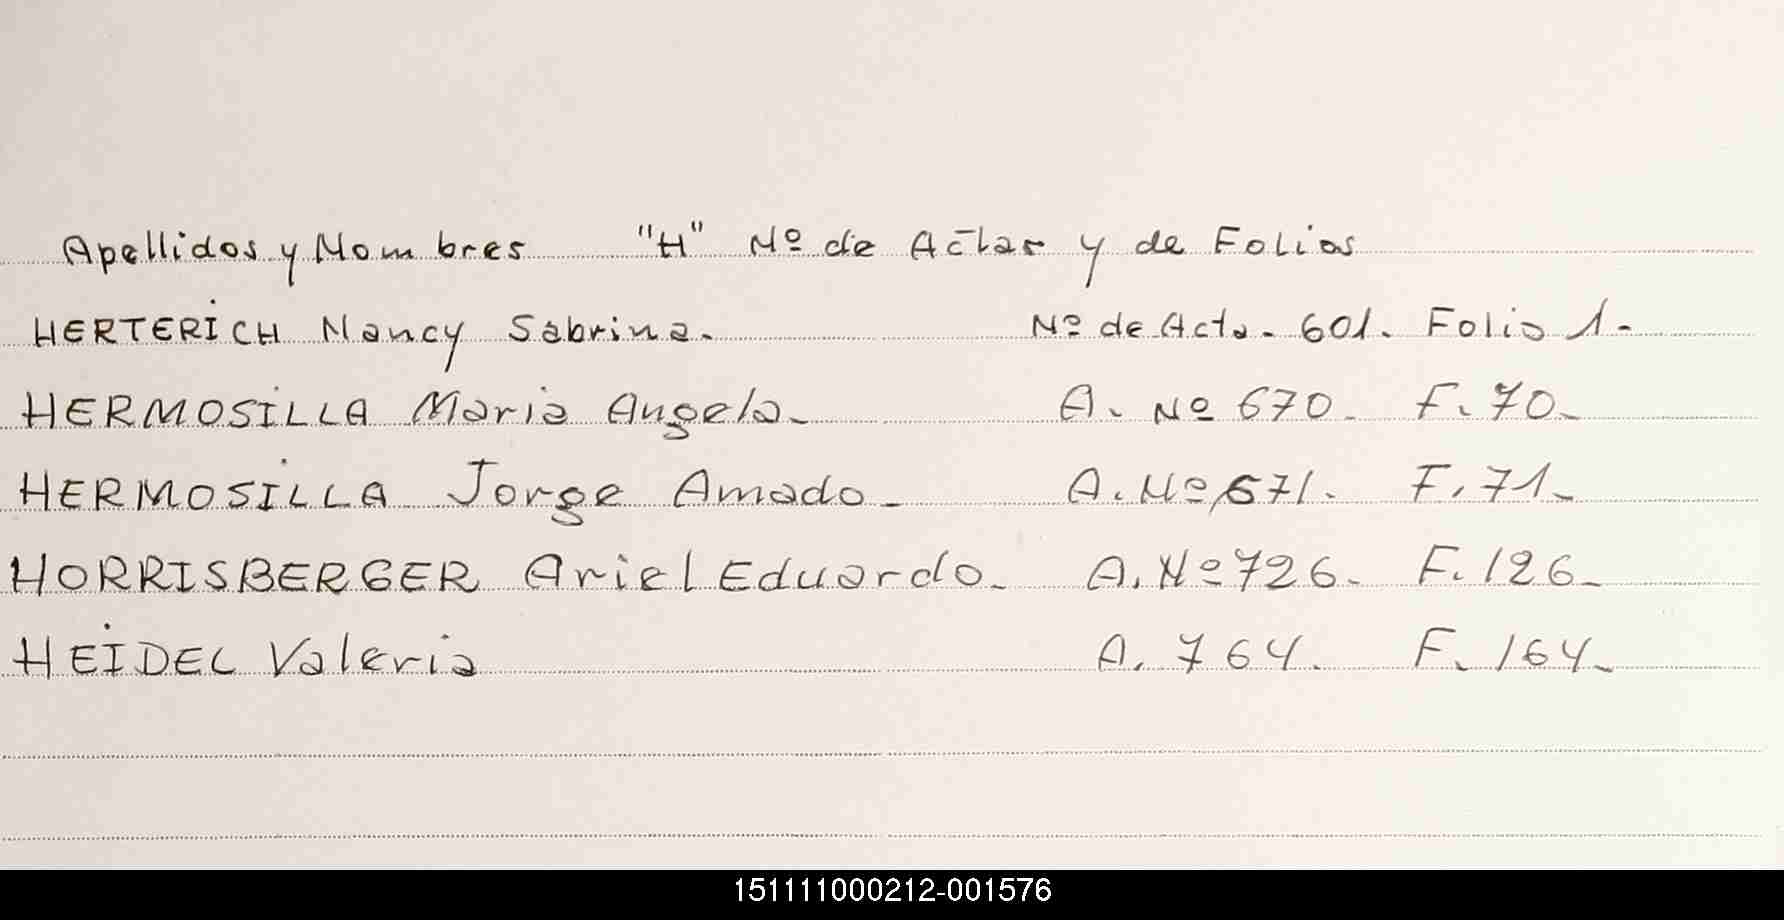 Apellidos y Nombres "H" Nº de Actas y de Folios
HERTERICH Nancy Sabrina. Nº de Acta. 601. Folio 1.-
HERMOSILLA Maria Angela.- A. Nº 670. F. 70.-
HERMOSILLA Jorge Amado.- A. Nº 671. F. 71.-
HORRISBERGER Ariel Eduardo.- A. Nº 726. F. 126.-
HEIDEL Valeria A. 764. F. 164.-
151111000212-001576